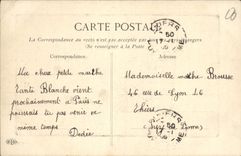 CARTE POSTALE
La Correspondance au recto n'est pas acceptée par tous les pays étrangers
(Se renseigner à la Poste)
Correspondance
Adresse
Ma chère petite Marthe
Tante Blanche vient
prochainement à Paris ne
pourrais tu pas venir en
même temps
Dédée
Mademoiselle Marthe Brousse
46 rue de Lyon 46
Thiers
(Puy de Dôme)
THIERS